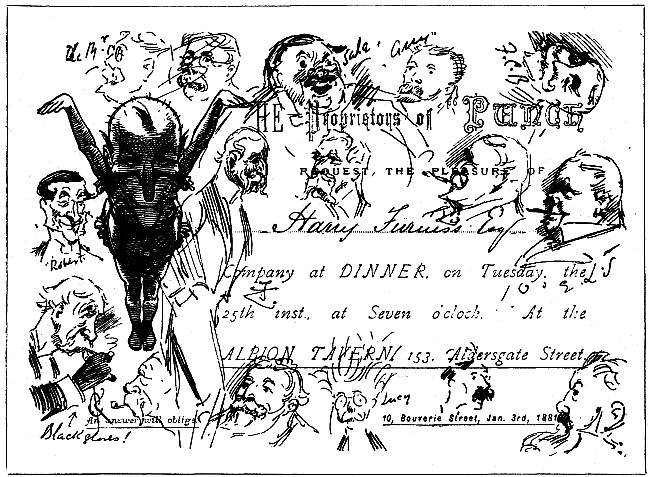 Sala
THE Proprietors of PUNCH
REQUEST, THE PLEASURE OF
Harry Furniss Esq
Company at DINNER, on Tuesday, the
25th inst., at Seven o'cloch. At the
ALBION TAVERN, 153, Aldersgate Street.
Robert
Lucy
An answer will oblige
10, Bouverie Street, Jan. 3rd, 1881
Black gloves!